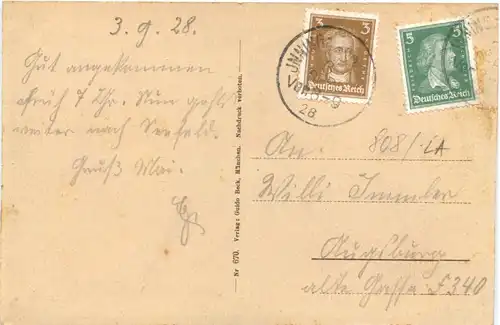 3. 9. 28.
Gut angekommen
früh 7 Uhr. Nun geht's
weiter nach Seefeld.
Gruß Mai.
Nr 670. Verlag: Guido Beck, München. Nachdruck verboten.
3 3
Deutsches Reich
5 5
Deutsches Reich
28
An. 808/IA
Willi Immler
Augsburg
alte Gasse F 340